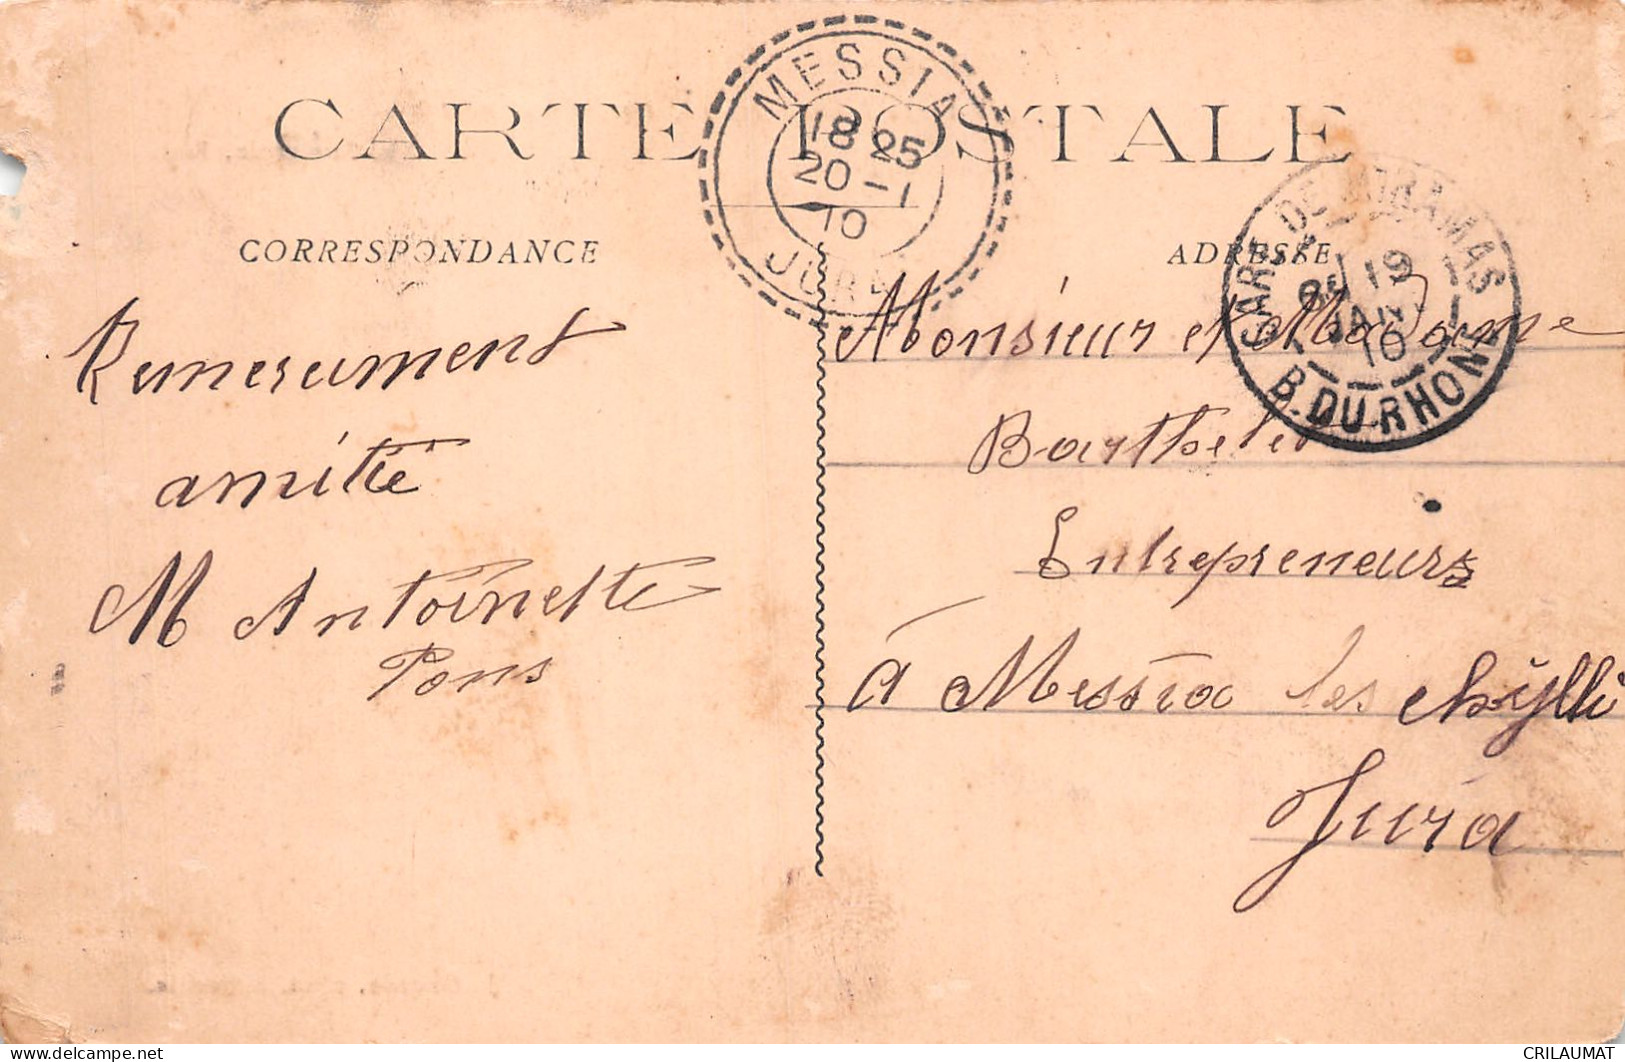 CARTE POSTALE
CORRESPONDANCE
ADRESSE
MESSIA
18 25
20 - 1
10
JURA
GARE DE MIRAMAS
19
JANV
10
B. DU RHONE
amitié
M Antoinette
Pons
Monsieur et Madame
Barthelet
Entrepreneurs
à Messia les chylli
Jura
delcampe.net
CRILAUMAT